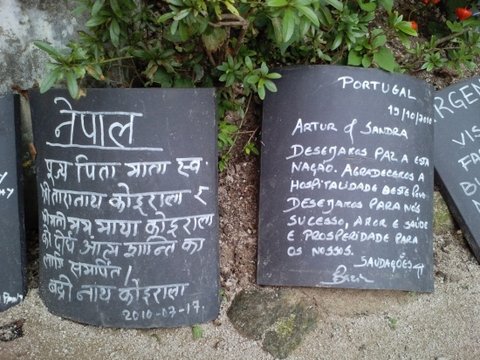 नेपाल
पूज्य पिता माता स्व.
श्री तारानाथ कोइराला र
माया कोइराला
को दीप आत्म शान्ति का
लागि समर्पित!
बद्री नाथ कोइराला
2010-07-17.
PORTUGAL
19/10/2010
ARTUR & SANDRA
DESEJAMOS PAZ A ESTA
NAÇÃO. AGRADECEMOS A
HOSPITALIDADE DESTE POVO.
DESEJAMOS PARA NÓS
SUCESSO, AMOR E SAÚDE
E PROSPERIDADE PARA
OS NOSSOS.
SAUDAÇÕES
RGEN
VIS
FA